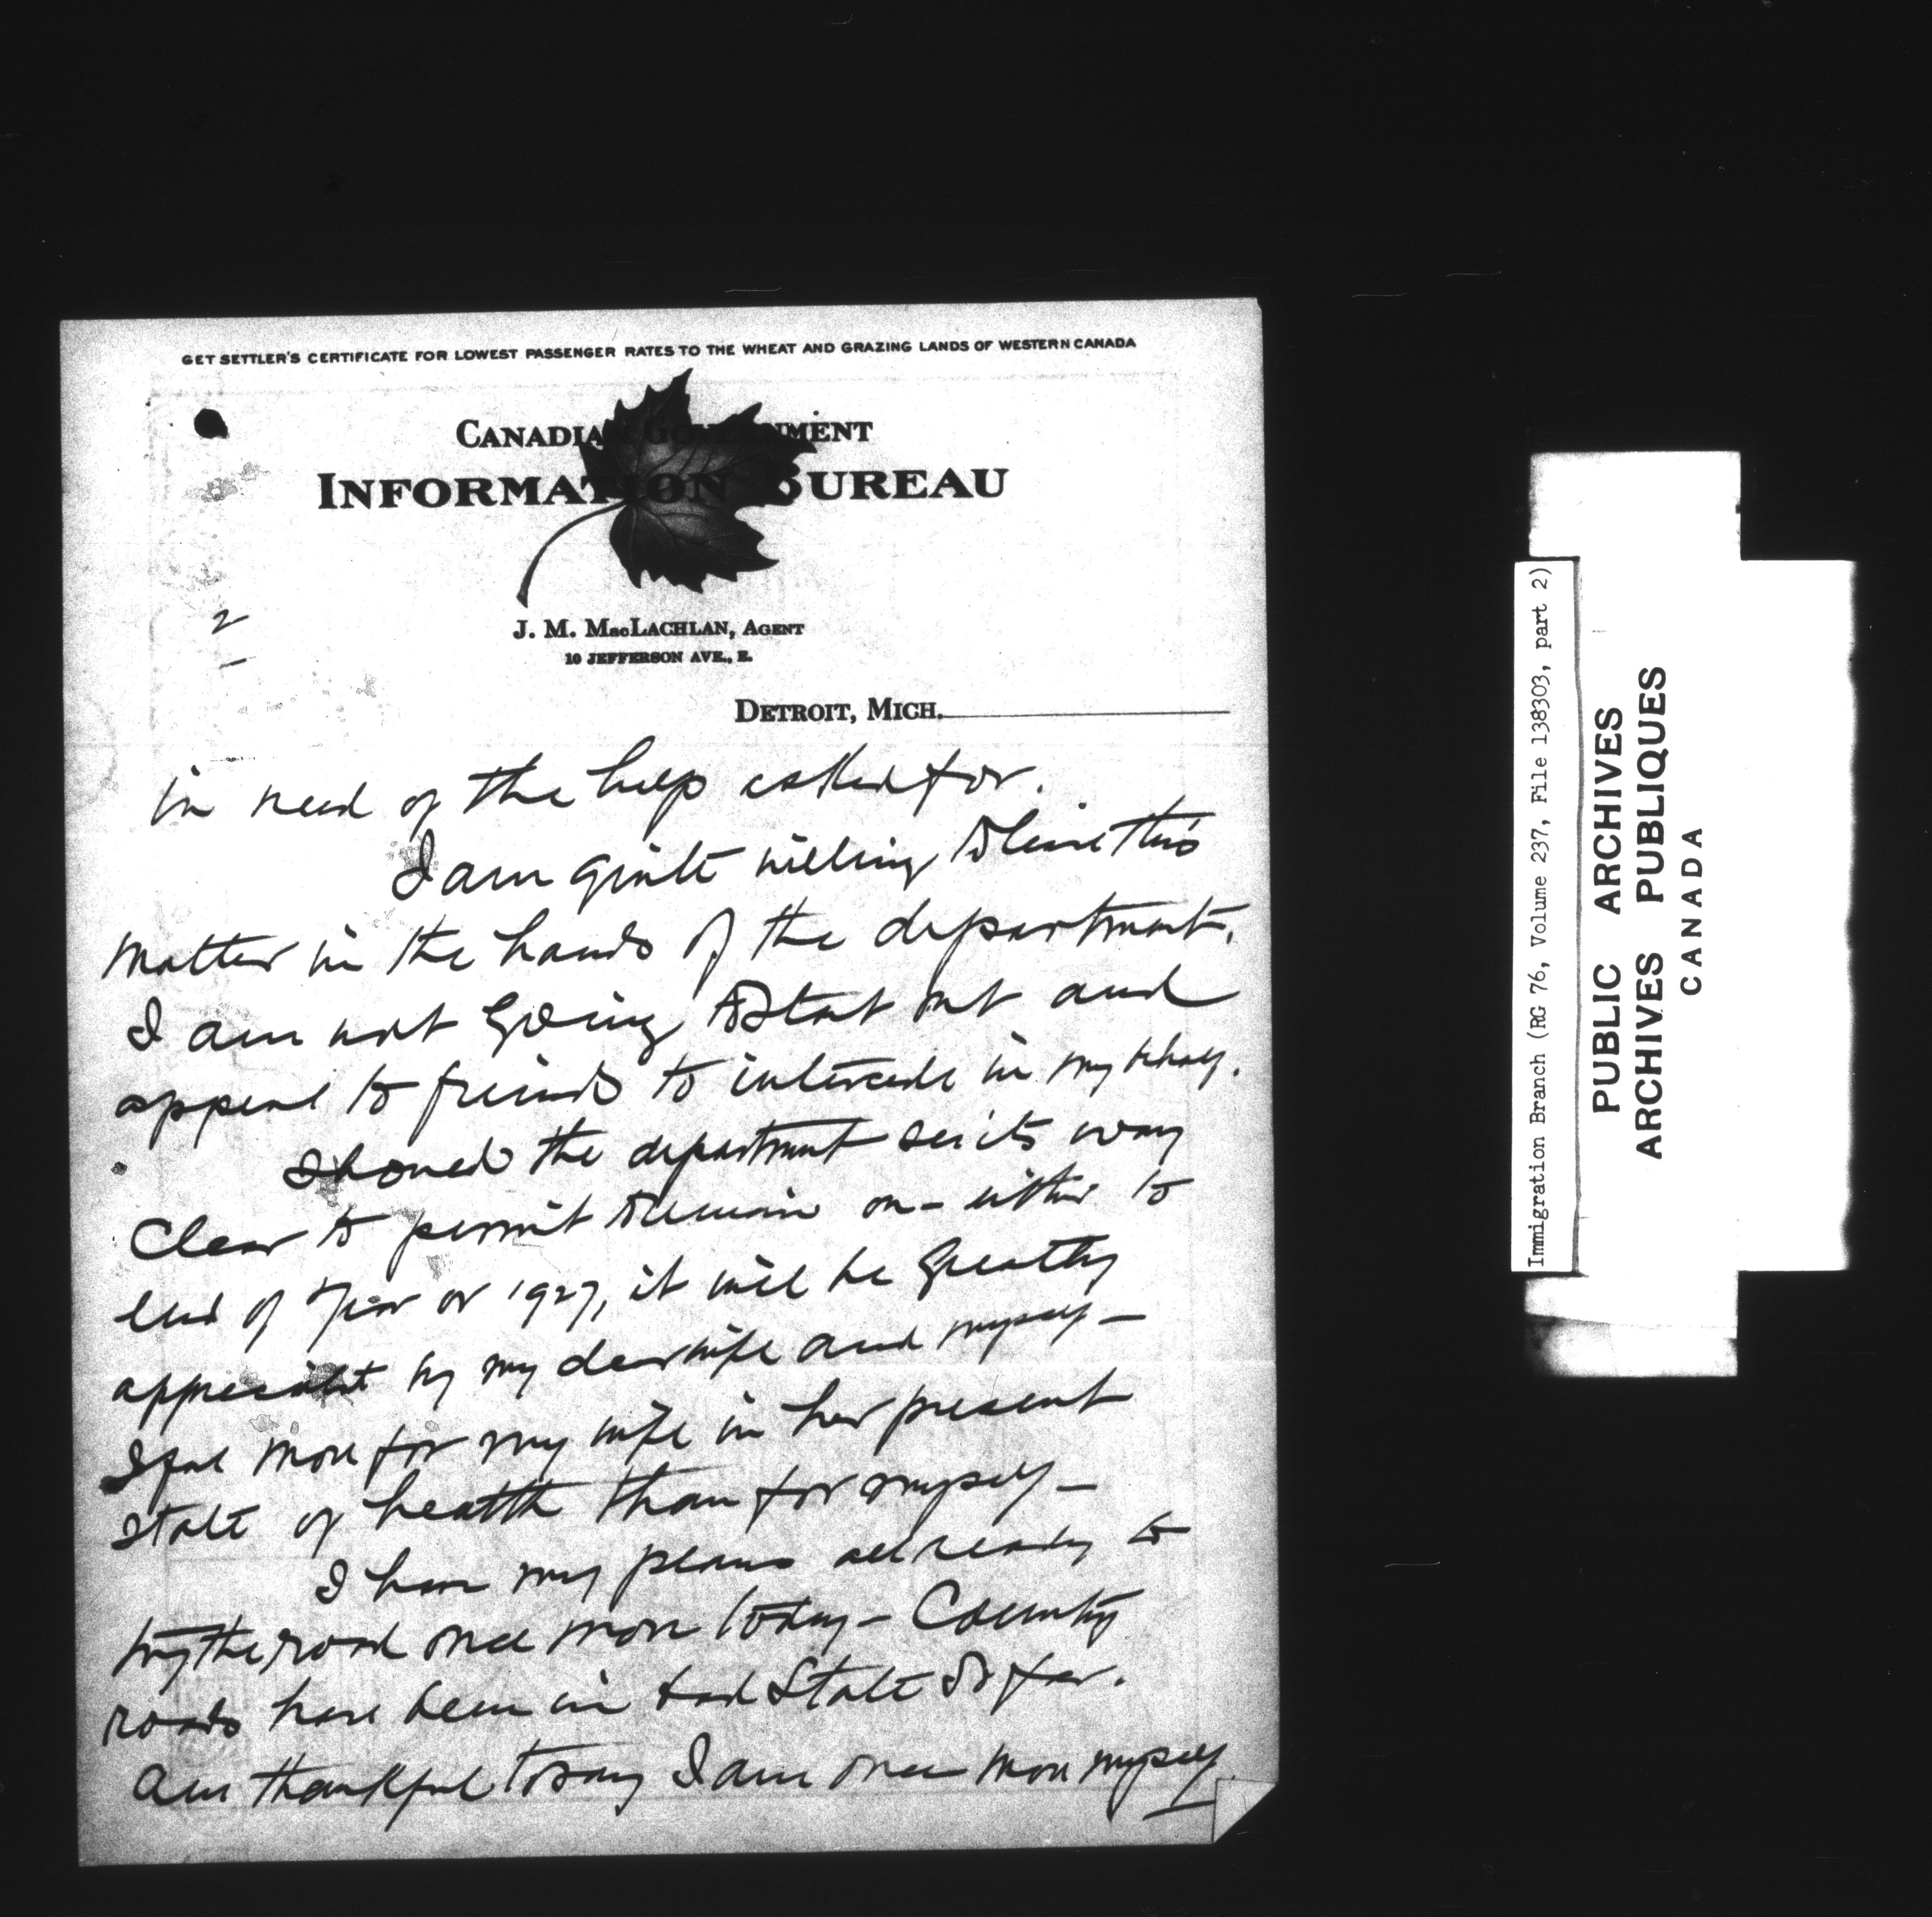 GET SETTLER'S CERTIFICATE FOR LOWEST PASSENGER RATES TO THE WHEAT AND GRAZING LANDS OF WESTERN CANADA
CANADIAN GOVERNMENT
INFORMATION BUREAU
2
J. M. MacLACHLAN, AGENT
10 JEFFERSON AVE., E.
DETROIT, MICH.
in need of the help asked for.
I am quite willing to leave this
matter in the hands of the department.
I am not going to start out and
appeal to friends to intercede in my behalf.
Should the department see its way
clear to permit to remain on - either to
end of year or 1927, it will be greatly
appreciated by my dear wife and myself -
I feel more for my wife in her present
state of health than for myself -
I have my plans all ready to
try the road once more today - Country
roads have been in bad state so far.
Am thankful to say I am once more myself.
Immigration Branch (RG 76, Volume 237, File 138303, part 2)
PUBLIC ARCHIVES
ARCHIVES PUBLIQUES
CANADA